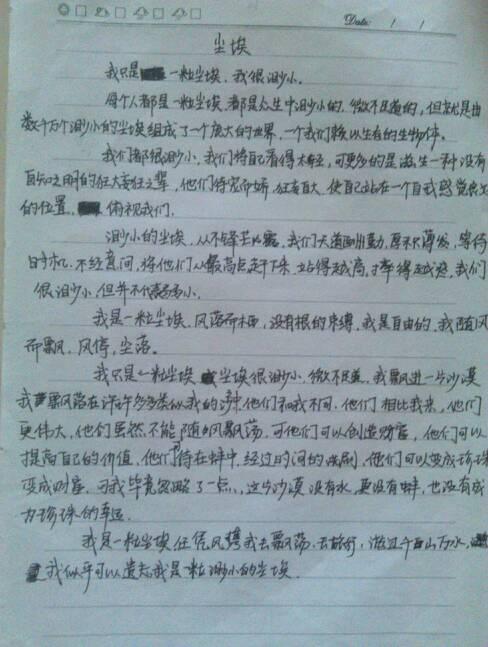 Date: / /
尘埃
我只是一粒尘埃，我很渺小。
每个人都是一粒尘埃，都是众生中渺小的，微不足道的，但就是由
数千万个渺小的尘埃组成了一个庞大的世界，一个我们赖以生存的生物体。
我们都很渺小，我们将自己看得太轻，可更多的是滋生一种没有
自知之明的狂大妄任之辈，他们恃宠而娇，狂妄自大，使自己站在一个自我感觉良好
的位置，俯视我们。
渺小的尘埃，从不锋芒必露，我们天道酬勤，厚积薄发，等待
时机，不经意间，将他们从最高点赶下来，站得越高，摔得越惨，我们
很渺小，但并不代表多小。
我是一粒尘埃，风落而栖，没有根的束缚，我是自由的，我随风
而飘，风停，尘落。
我只是一粒尘埃，尘埃很渺小，微不足道，我飘进一片沙漠
我飘落在许许多多类似我的沙中，他们和我不同，他们相比我来，他们
更伟大，他们虽然不能随风飘荡，可他们可以创造财富，他们可以
提高自己的价值，他们待在蚌中，经过时间的洗刷，他们可以变成珍珠
变成财富，可我毕竟忽略了一点，这片沙漠没有水，更没有蚌，也没有成
为珍珠的幸运。
我是一粒尘埃任凭风携我去飘荡，去旅行，游过千山万水，
我似乎可以遗忘我是一粒渺小的尘埃．